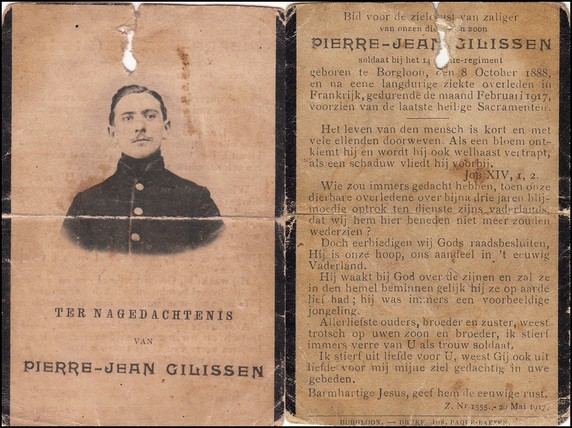 TER NAGEDACHTENIS
VAN
PIERRE-JEAN GILISSEN
Bid voor de zielerust van zaliger
van onzen zoon
PIERRE-JEAN GILISSEN
soldaat bij het 14 regiment
geboren te Borgloon, den 8 October 1888,
en na eene langdurige ziekte overleden in
Frankrijk, gedurende de maand Februari 1917,
voorzien van de laatste heilige Sacramenten.
Het leven van den mensch is kort en met
vele ellenden doorweven. Als een bloem ont-
kiemt hij en wordt hij ook welhaast vertrapt,
als een schaduw vliedt hij voorbij.
Job XIV, 1, 2.
Wie zou immers gedacht hebben, toen onze
dierbare overledene over bijna drie jaren blij-
moedig optrok ten dienste zijns vaderlands,
dat wij hem hier beneden niet meer zouden
wederzien ?
Doch eerbiedigen wij Gods raadsbesluiten,
Hij is onze hoop, ons aandeel in 't eeuwig
Vaderland.
Hij waakt bij God over de zijnen en zal ze
in den hemel beminnen gelijk hij ze op aarde
lief had ; hij was immers een voorbeeldige
jongeling.
Allerliefste ouders, broeder en zuster, weest
trotsch op uwen zoon en broeder, ik stierf
immers verre van U als trouw soldaat.
Ik stierf uit liefde voor U, weest Gij ook uit
liefde voor mij mijne ziel gedachtig in uwe
gebeden.
Barmhartige Jesus, geef hem de eeuwige rust.
Z. Nr 1555. - 20 Mai 1917.
BORGLOON. — DRUKK. JOS.